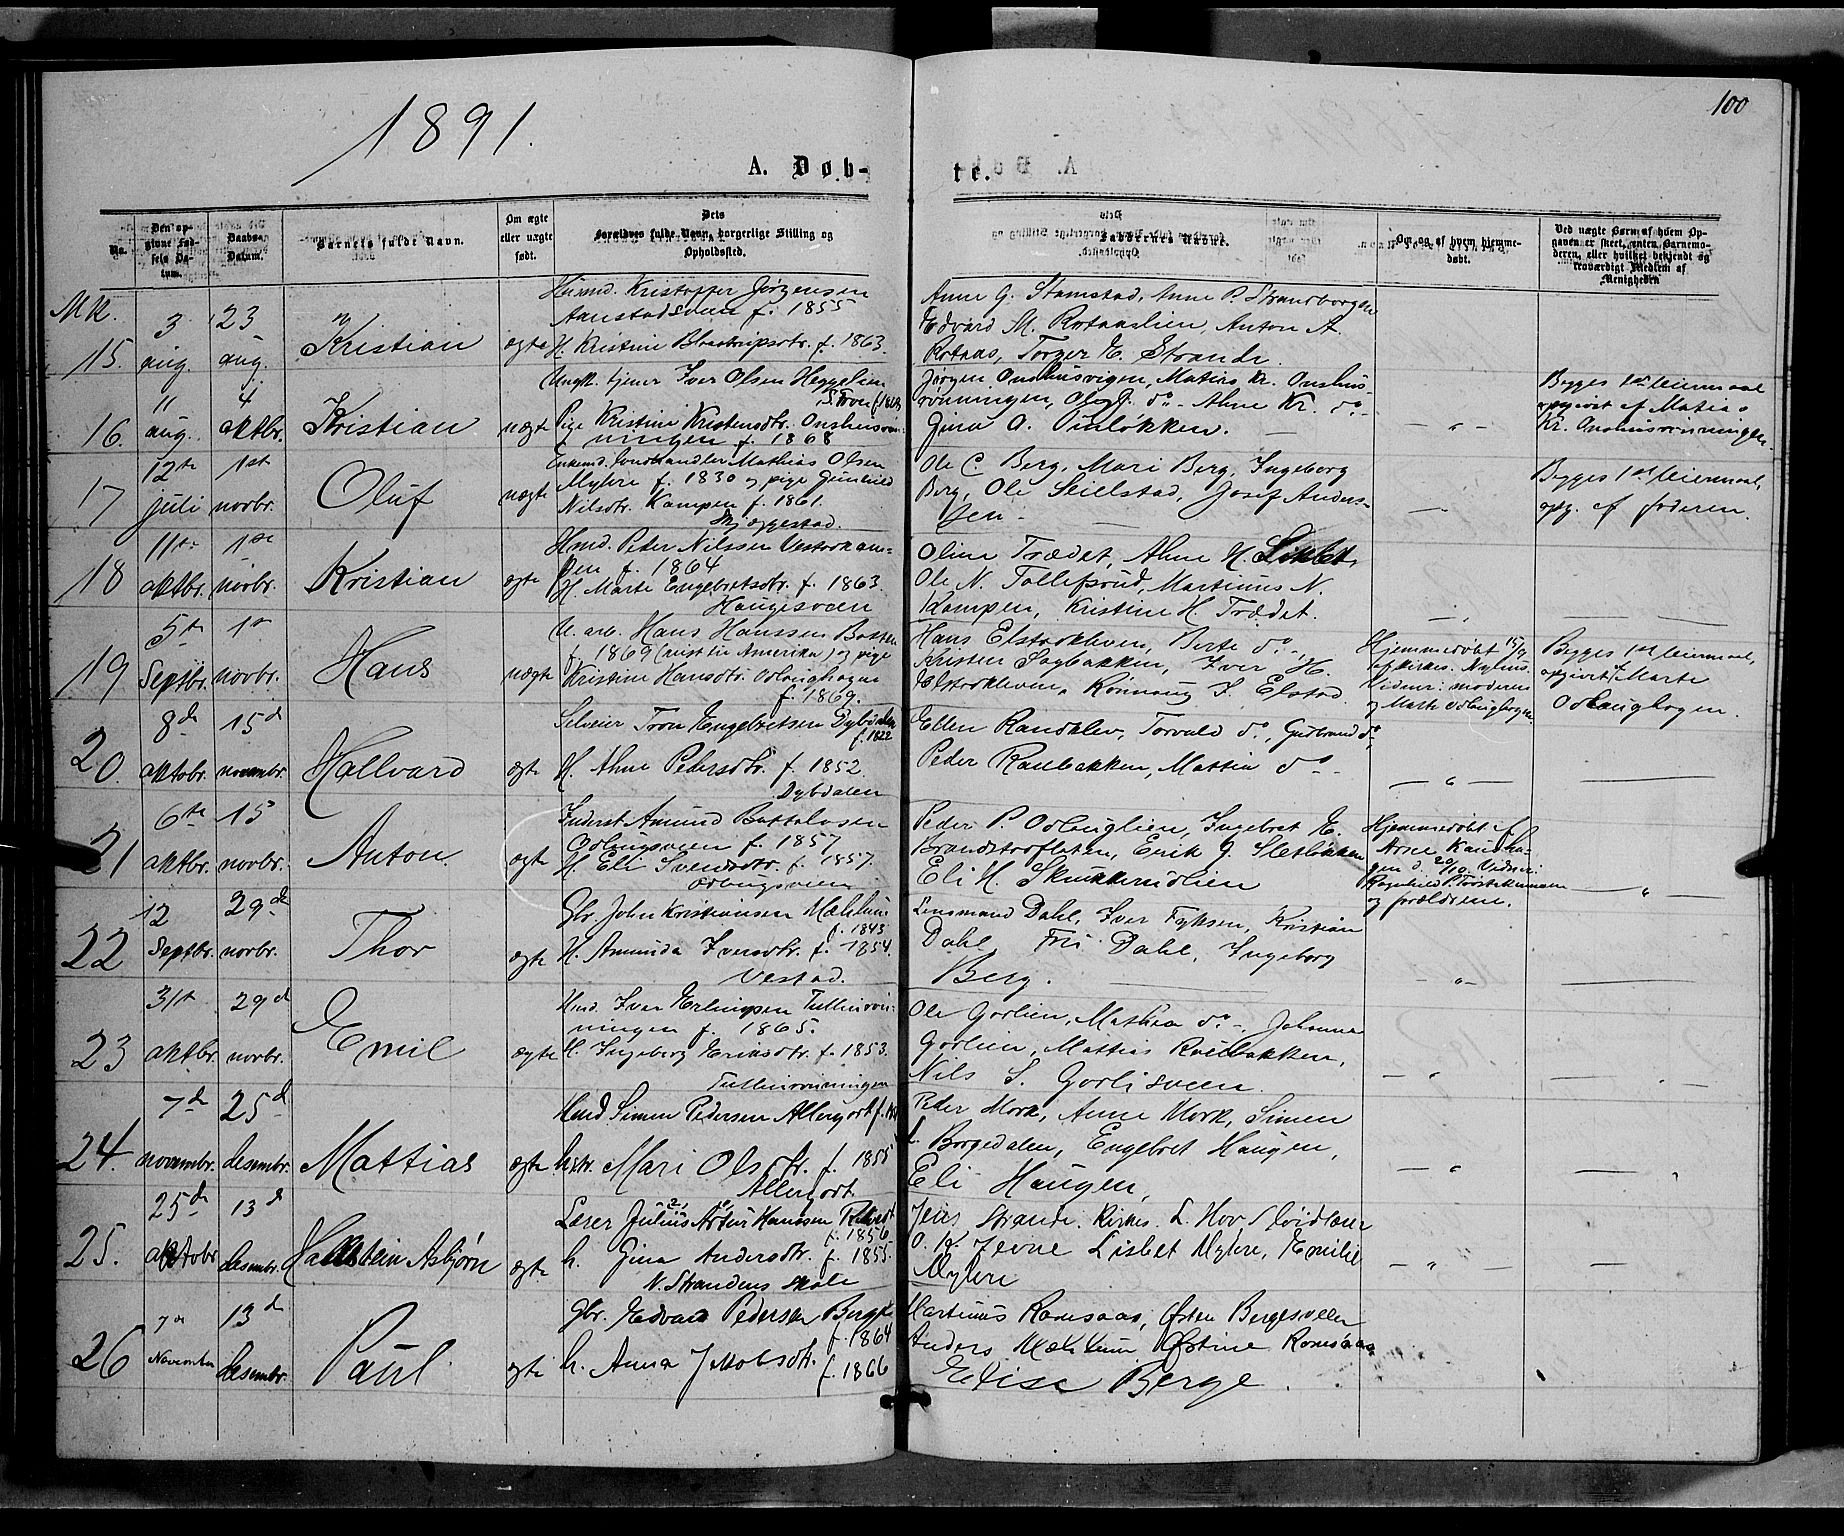 100
1891.
A. Døb-
te.
No.
Den opgivne Fødsels Datum.
Daabs-Datum.
Barnets fulde Navn.
Om ægte eller uægte født.
Dets Forældres fulde Navn, borgerlige Stilling og Opholdssted.
Faddernes Navne.
Om og af hvem hjemmedøbt.
Ved uægte Børn af hvem Opgaven er skeet, enten Barnemoderen, eller hvilket bekjendt og troværdigt Medlem af Menigheden
MK.
15.
3 aug.
23 aug.
Kristian
ægte
Husmd. Kristoffer Jørgensen
Aanstadsveen f. 1855
H. Kristine f. 1863.
Anne G. Stamstad, Anne P. Strandborgen
Edvard M. Rotaaslien, Anton A.
Rotaas, Torger E. Strande.
16.
11 aug.
4 oktbr.
Kristian
uægte
Ungk. tjener Iver Olsen Heggelien
S. Fron
Pige Kristine Kristensdtr. Onshusrøn-
ningen f. 1868
Jørgen Onshusvigen, Matias Kr. Onshus-
rønningen, Oluf do - Ahne Kr. do -
Gina O. Onsløkken.
Begges 1st leiermaal
opgivet af Matias
Kr. Onshusrønningen
17
12te juli
1st novbr.
Oluf
uægte
Enkemd. landhandler Mathias Olsen
Myhre f. 1830 og pige Gunhild
Nilsdtr. Kampen f. 1861.
Skjæggestad.
Ole C. Berg, Mari Berg, Ingeborg
Berg, Ole Seielstad, Josef Anders-
sen -
Begges 1st leiermaal,
opg. af faderen.
18
11te oktbr.
1ste novbr.
Kristian
ægte
Hmd. Peter Nilssen Vesterkam-
pen f. 1864
H. Marte Engebretsdtr. f. 1863.
Haugesveen
Oline Trædet, Ahne H.
Ole N. Tollefsrud, Martinus N.
Kampen, Kristine H. Trædet.
19
5te Septbr.
1st novbr.
Hans
uægte
U. arb. Hans Hanssen
f. 1869 (reist til Amerika) og pige
Kristine Hansdtr. Odlaughagen
f. 1869.
Hans Elstaskleven, Berte do -,
Kristen Sagbakken, Iver H.
Elstaskleven, Rønnaug I. Elstad
Hjemmedøbt 15/9
af kirkes. Nyhus.
Vidner: moderen
og Marte Odlaughagen
Begges 1st leiermaal,
opgivet af Marte
Odlaughagen.
20.
8de oktobr.
15d novembr.
Hallvard
ægte
Selveier Tron Engebretsen Dybdalen
f. 1822
H. Ahne Pedersdtr. f. 1852.
Dybdalen
Ellen Randklev, Torvald do, Gudbrand do,
Peder Raubakken, Mattia do -
21
6te oktbr.
15 novbr.
Anton.
ægte
Inderst Amund Bottolvsen
Odlougsveen f. 1857
H. Eli Svendsdtr. f. 1857.
Odlougsveen
Peder P. Odlauglien, Ingebret E.
Brandstadfleten, Erik G. Sletløkken
Eli H. Skurkerudlien
Hjemmedøbt af
Arne Kandha-
gen d. 20/10. Vidner:
Ragnhild P.
og forældrene.
22
12 Septbr.
29de novbr.
Thor
ægte
Gbr. John Kristiansen Mæhlum
f. 1843
H. Amunda Iversdtr. f. 1854.
Vestad.
Lensmand Dahl, Iver Fyksen, Kristian
Dahl, Fru Dahl, Ingeborg
Berg.
23
31st oktbr.
29d novbr.
Emil
ægte
Hmd. Iver Erlingsen Tullierøn-
ningen f. 1865.
H. Ingeborg Eriksdtr. f. 1853.
Tullierønningen
Ole Gorlien, Mathea do -, Johanna
Gorlien, Mattias Roelbakken,
Nils S. Gorlisveen.
24.
7de novembr.
25d desembr.
Mattias
ægte
Hmd Simen Pedersen Allergodt
hstr. Mari Olsdtr. f. 1855
Allergodt
Peder Mork, Anne Mork, Simen
L. Borgedalen, Engebret Haugen,
Eli Haugen,
25.
25de oktobr
13d desembr.
Hallstein Asbjørn
ægte
Lærer Julius Artur Hanssen
f. 1856
h. Gina Andersdtr. f. 1855.
N. Strandens skole
Jens Strande. Kirkes. L. Hov,
O. K. Jevne Lisbet Myhre, Emilie
Myhre
26
7de November
13d desembr.
Paul.
ægte
Gbr. Edvard Pedersen Berge
f. 1864
h. Anna Jakobsdtr. f. 1866
Martinus Ramsaas, Østen Bergesveen
Anders Mæhlum Østine Ramsaas
Elise Berge.